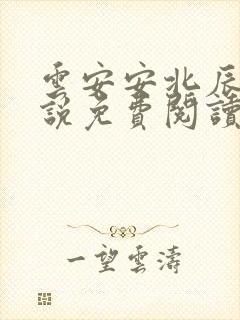 雲安安北辰
說免費閱讀
一望雲濤